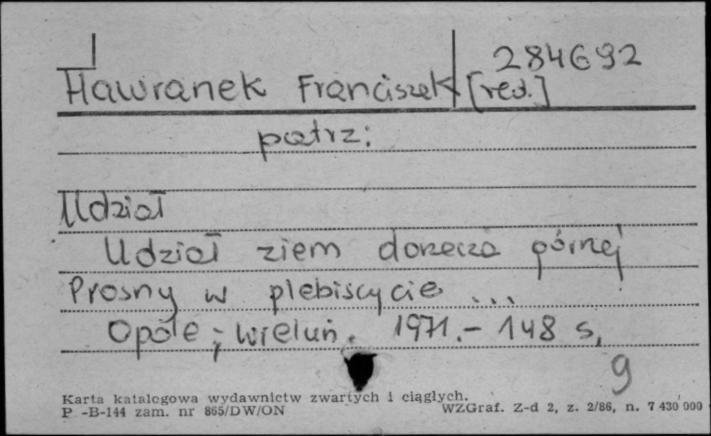 284692
Hawranek Franciszek [red.]
patrz:
Udział
Udział ziem dorzecza górnej
Prosny w plebiscycie ...
Opole ; Wieluń. 1971. - 148 s.
9
Karta katalogowa wydawnictw zwartych i ciągłych.
P -B-144 zam. nr 865/DW/ON WZGraf. Z-d 2, z. 2/86, n. 7 430 000